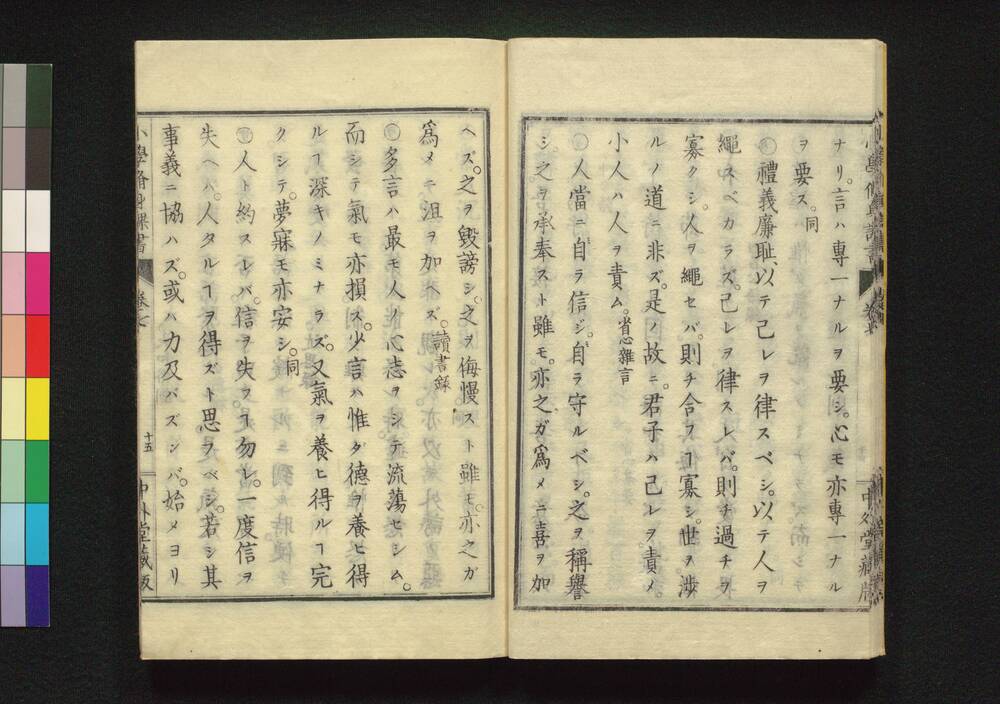 ナリ。言ハ專一ナルヲ要シ。心モ亦專一ナル
ヲ要ス。同
禮義廉耻、以テ己レヲ律スベシ。以テ人ヲ
繩スベカラズ。己レヲ律スレバ。則チ過チヲ
寡クシ。人ヲ繩セバ。則チ合フヿ寡シ。世ヲ渉
ルノ道ニ非ズ。是ノ故ニ。君子ハ己レヲ責メ。
小人ハ人ヲ責ム。省心雜言
人當ニ自ラ信ジ。自ラ守ルベシ。之ヲ稱譽
シ之ヲ承奉スト雖モ。亦之ガ爲メニ喜ヲ加
ヘズ。之ヲ毀謗シ。之ヲ侮慢スト雖モ。亦之ガ
爲メニ沮ヲ加ヘズ。讀書録
多言ハ最モ人ノ心志ヲシテ流蕩セシム。
而シテ氣モ亦損ス。少言ハ惟ダ德ヲ養ヒ得
ルヿ深キノミナラズ。又氣ヲ養ヒ得ルヿ完
クシテ。夢寐モ亦安シ。同
人ト約スレバ。信ヲ失フヿ勿レ。一度信ヲ
失ヘバ。人タルヿヲ得ズト思フベシ。若シ其
事義ニ協ハズ。或ハ力及バズンバ。始メヨリ
小學脩身課書
卷之七
十五
中外堂藏版